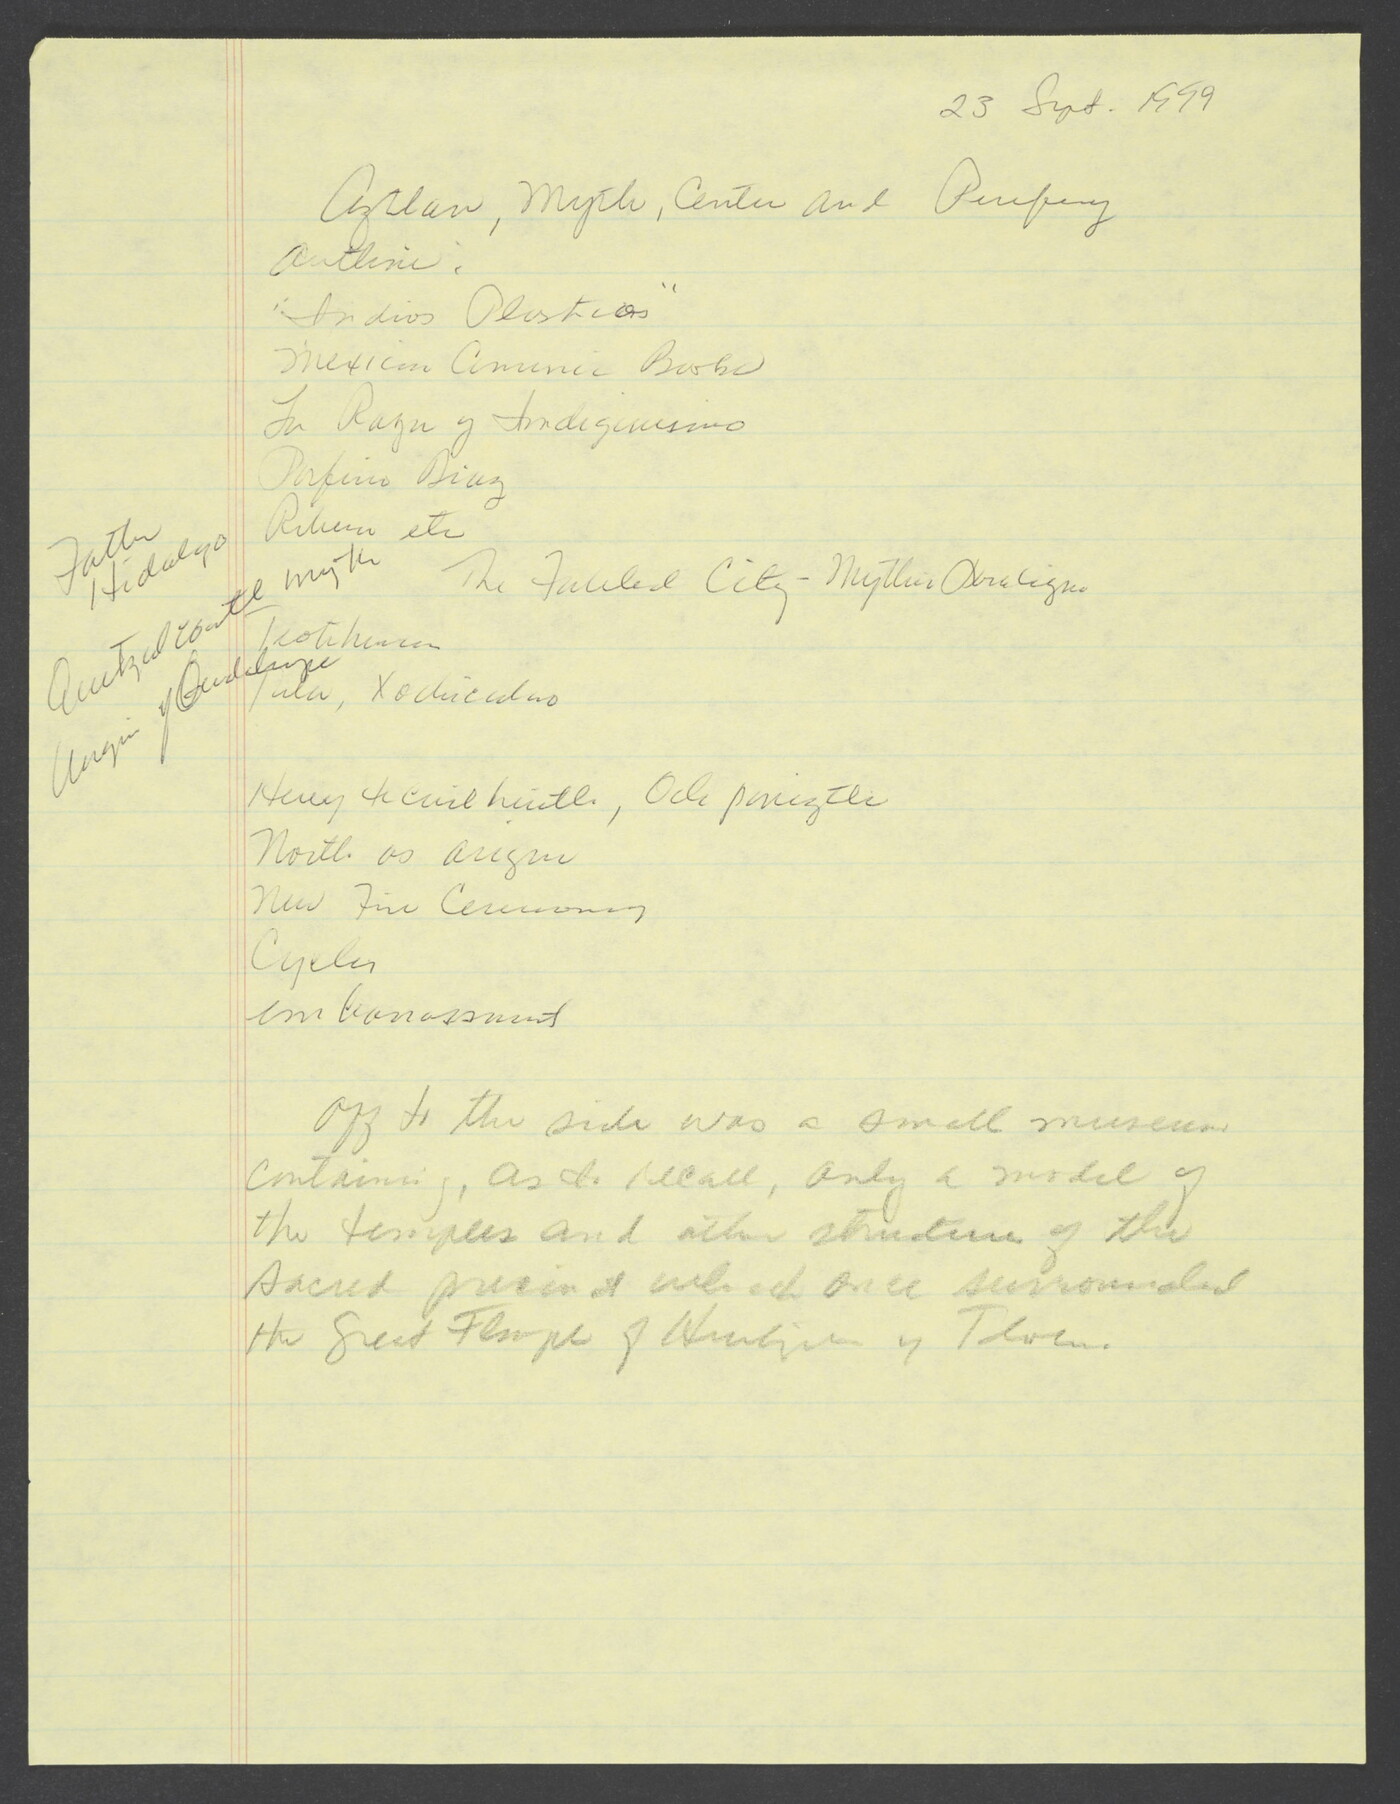 23 Sept. 1999
Aztlan, Myth, Center and Perifery
Outline:
"Indios Plasticos"
Mexican Comic Books
La Raza y Indigenismo
Porfirio Diaz
Rivera etc
Father
Hidalgo
Quetzalcoatl myth
Virgin of Guadalupe
The Fabled City - Mythic Paradigm
Teotihuacan
Tula, Xochicalco
Huey tecuilhuitl, Ochpaniztli
North as origin
New Fire Ceremony
Cycles
embarrassment
Off to the side was a small museum
containing, as I recall, only a model of
the temples and other structures of the
sacred precinct which once surrounded
the Great Temple of y Tlaloc.